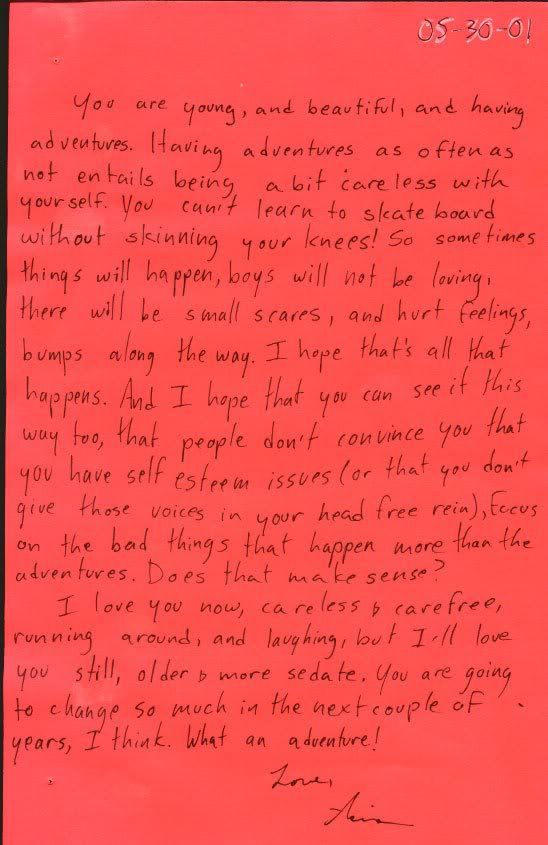 05-30-01
You are young, and beautiful, and having
adventures. Having adventures as often as
not entails being a bit careless with
yourself. You can't learn to skateboard
without skinning your knees! So sometimes
things will happen, boys will not be loving,
there will be small scares, and hurt feelings,
bumps along the way. I hope that's all that
happens. And I hope that you can see it this
way too, that people don't convince you that
you have self esteem issues (or that you don't
give those voices in your head free rein), Focus
on the bad things that happen more than the
adventures. Does that make sense?
I love you now, careless & carefree,
running around, and laughing, but I'll love
you still, older & more sedate. You are going
to change so much in the next couple of
years, I think. What an adventure!
Love,